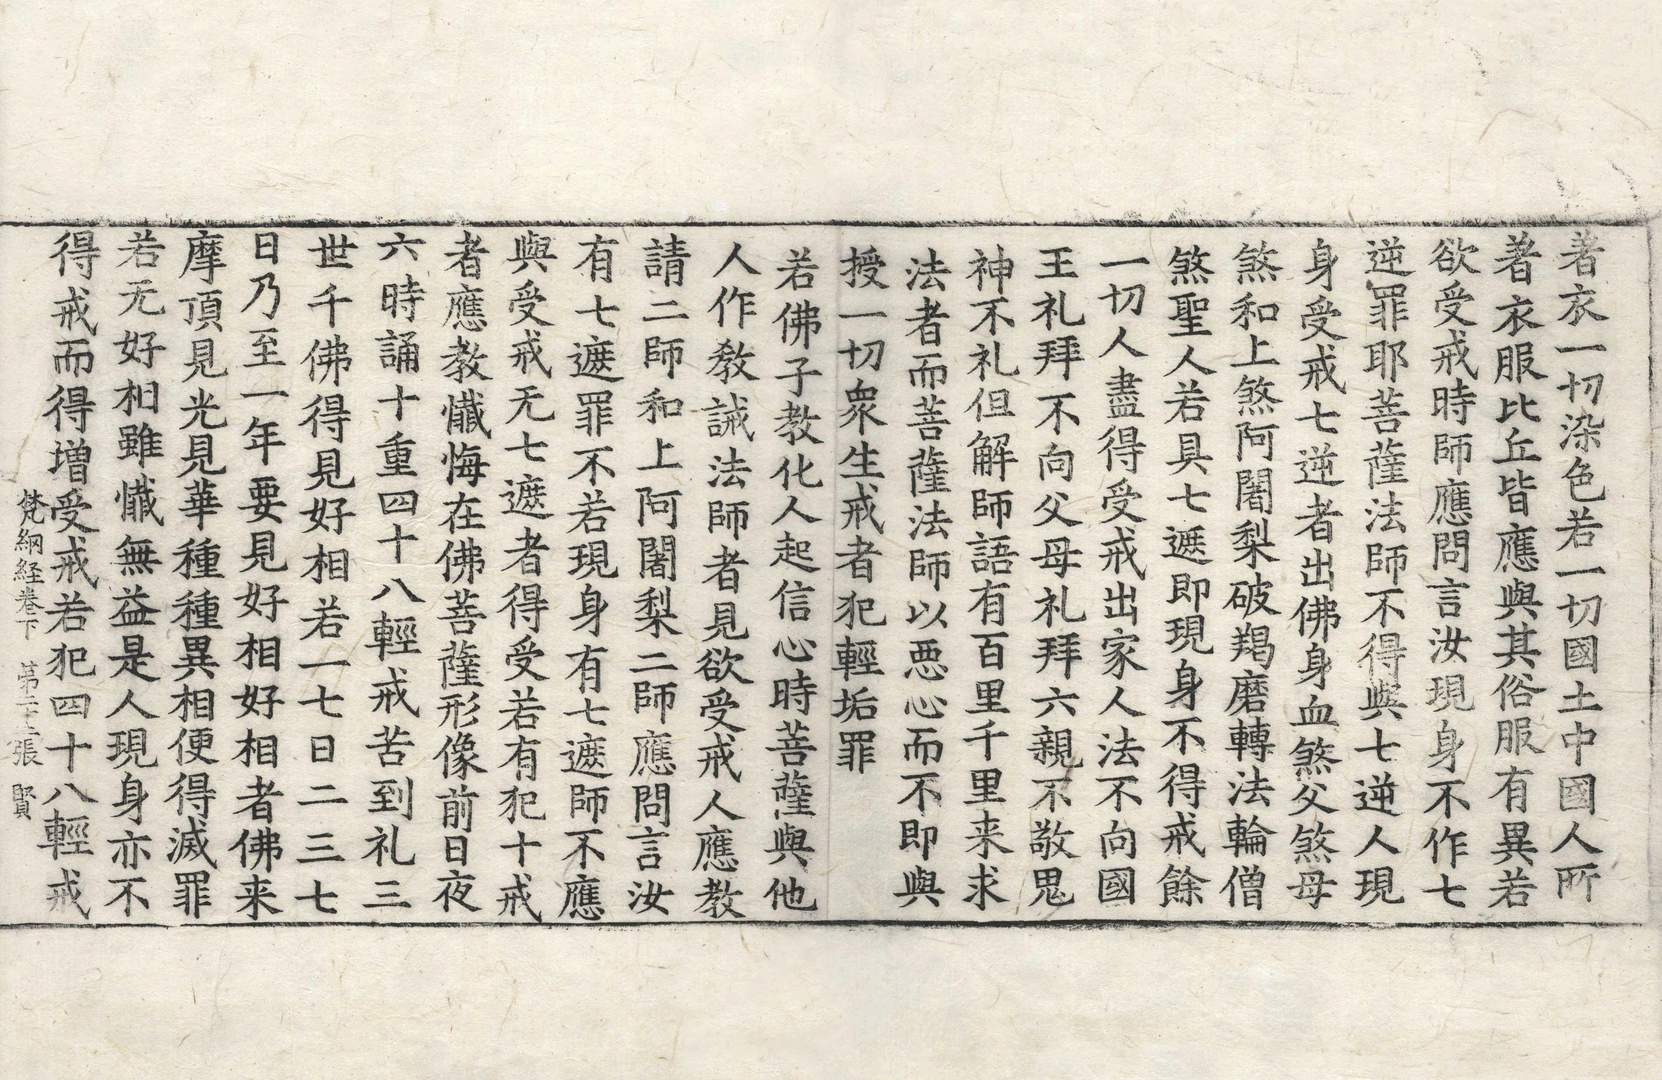 著衣一切染色若一切國土中國人所
著衣服比丘皆應與其俗服有異若
欲受戒時師應問言汝現身不作七
逆罪耶菩薩法師不得與七逆人現
身受戒七逆者出佛身血煞父煞母
煞和上煞阿闍梨破羯磨轉法輪僧
煞聖人若具七遮即現身不得戒餘
一切人盡得受戒出家人法不向國
王礼拜不向父母礼拜六親不敬鬼
神不礼但解師語有百里千里来求
法者而菩薩法師以恶心而不即與
授一切衆生戒者犯輕垢罪
若佛子教化人起信心時菩薩與他
人作教誡法師者見欲受戒人應教
請二師和上阿闍梨二師應問言汝
有七遮罪不若現身有七遮師不應
與受戒无七遮者得受若有犯十戒
者應教懺悔在佛菩薩形像前日夜
六時誦十重四十八輕戒苦到礼三
世千佛得見好相若一七日二三七
日乃至一年要見好相好相者佛来
摩頂見光見華種種異相便得滅罪
若无好相雖懺無益是人現身亦不
得戒而得增受戒若犯四十八輕戒
梵網経卷下 苐二十二張 賢